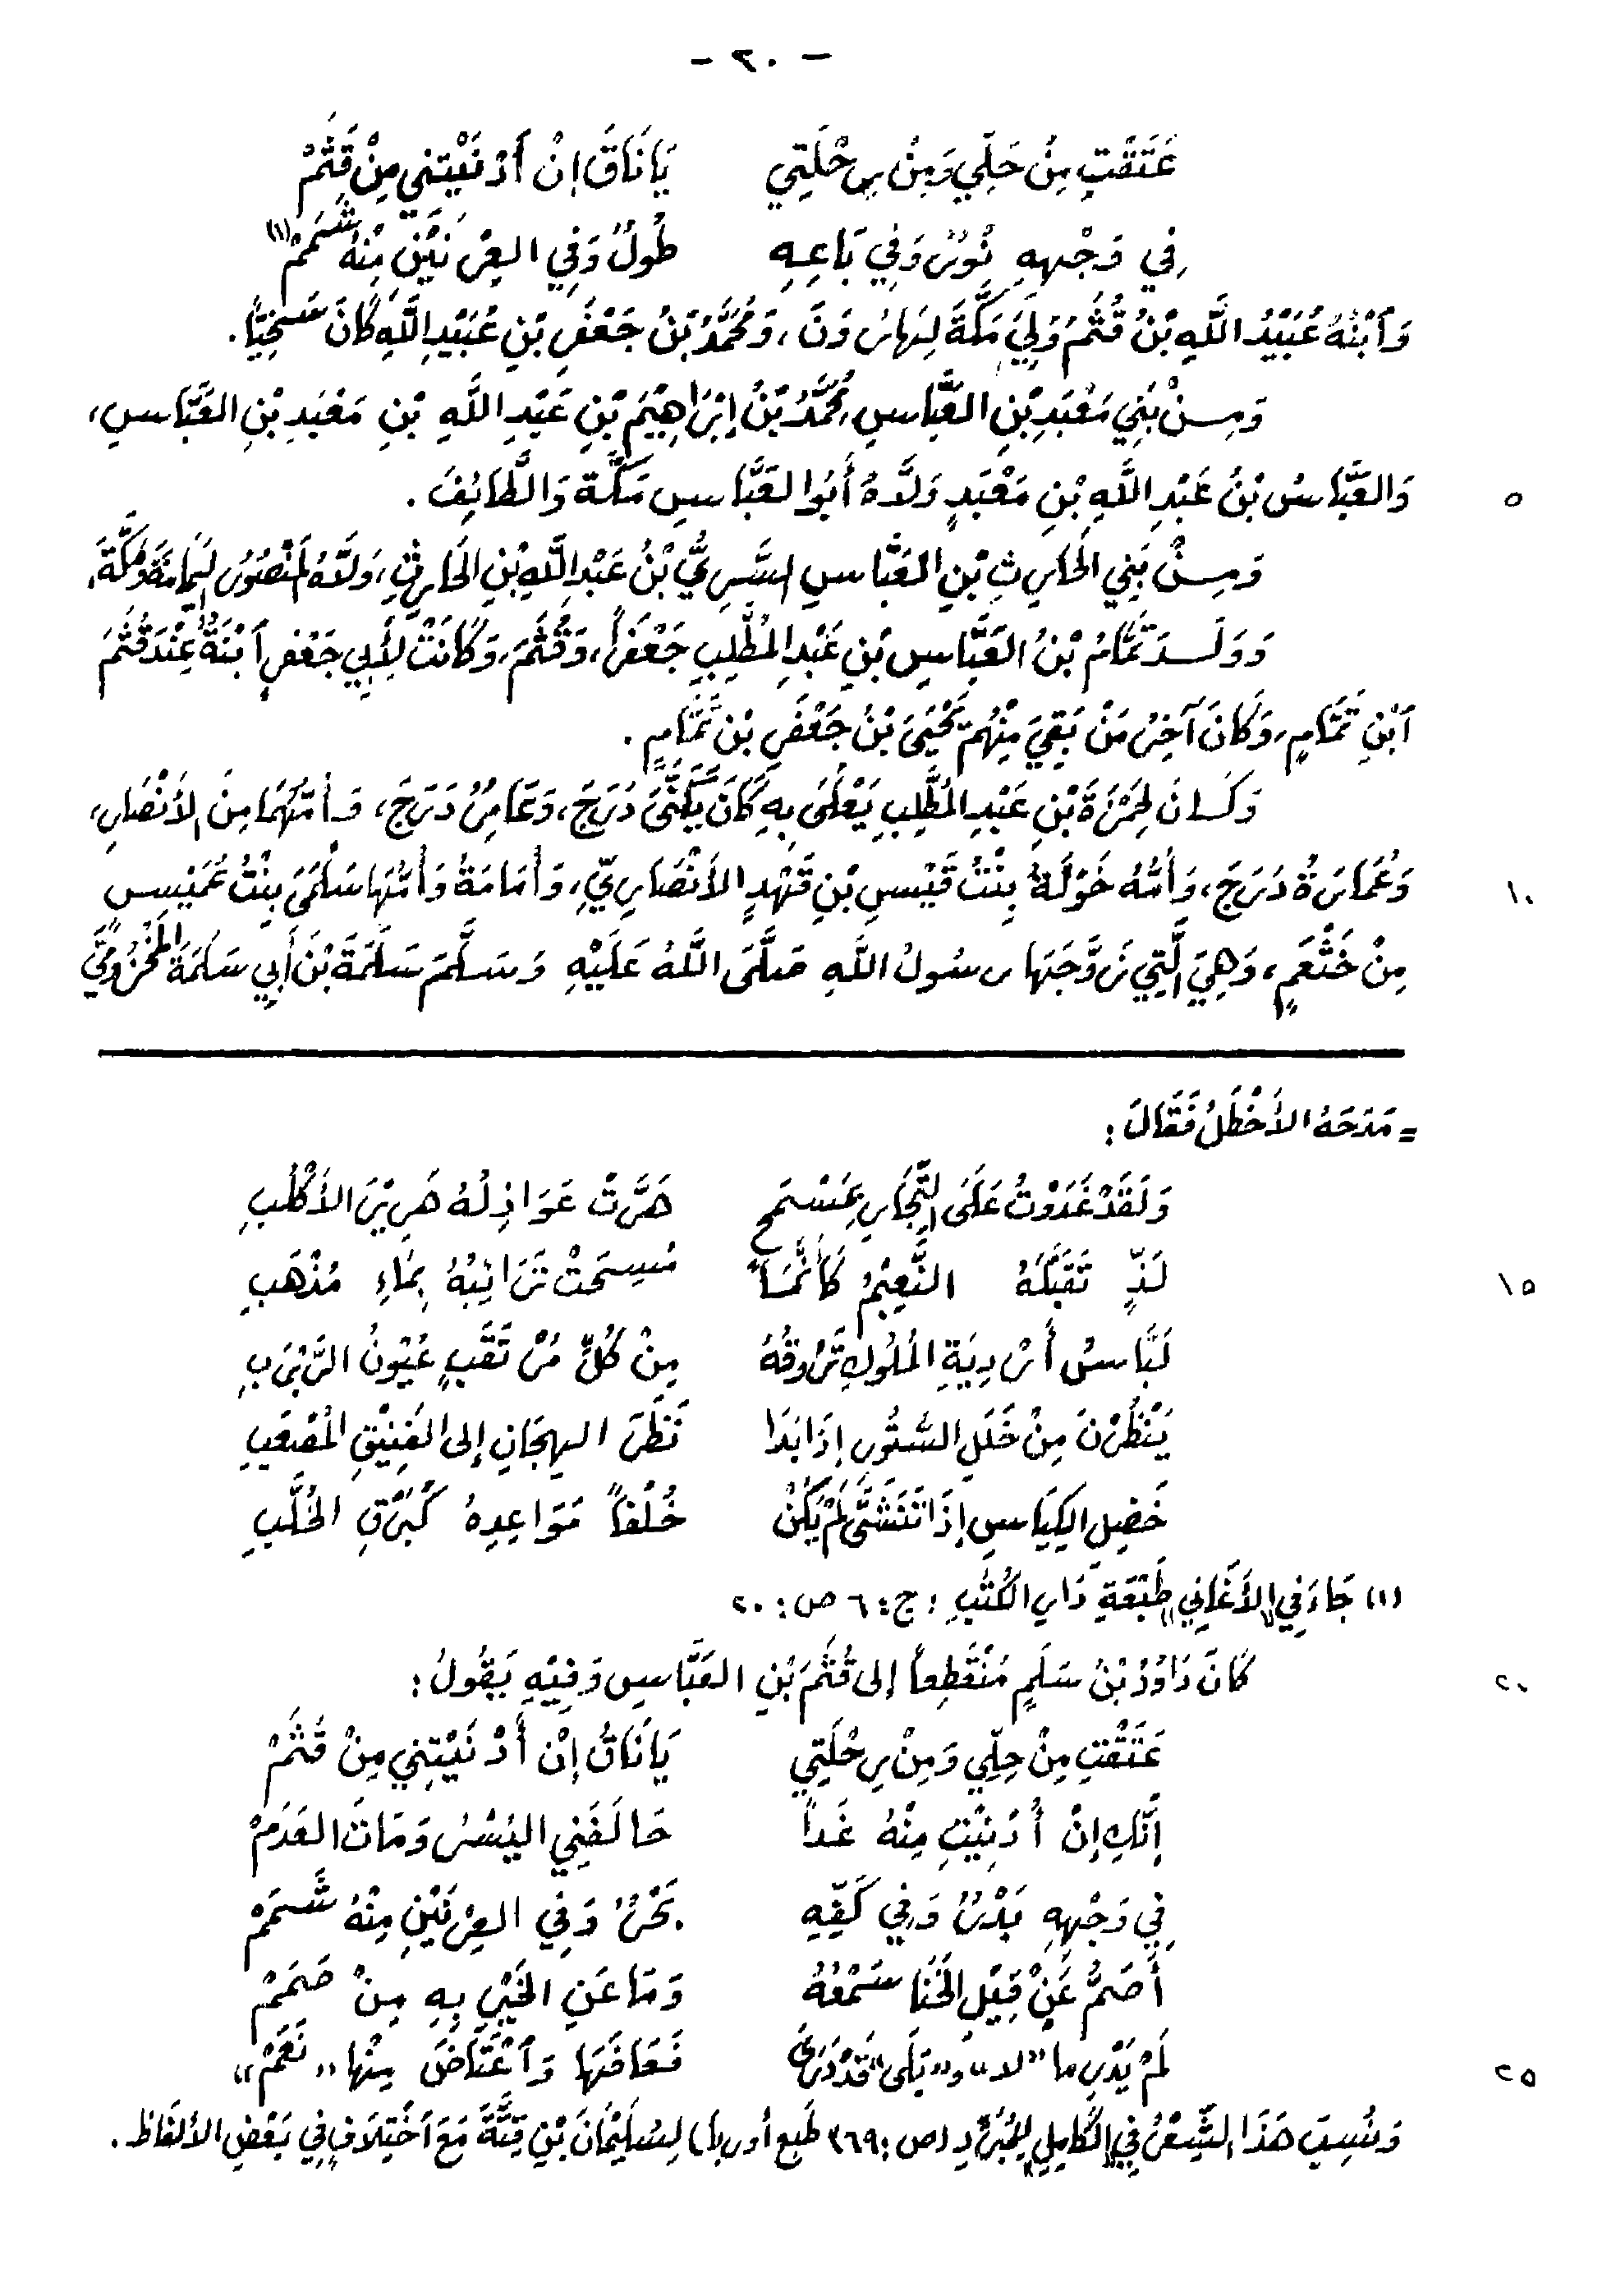 - ٢٠ -
عَتَقْتِ مِنْ حَلِّي وَمِنْ رِحْلَتِي يَا نَاقَ إِنْ أَدْنَيْتِنِي مِنْ قُثَمْ
فِي وَجْهِهِ نُورٌ وَفِي بَاعِهِ طُولٌ وَفِي العِرْنَيْنِ مِنْهُ شَمَمْ (١)
وَٱبْنُهُ عُبَيْدُ اللَّهِ بْنُ قُثَمَ وَلِيَ مَكَّةَ لِهَارُونَ، وَمُحَمَّدُ بْنُ جَعْفَرِ بْنِ عُبَيْدِ اللَّهِ كَانَ سَخِيّاً.
وَمِنْ بَنِي مَعْبَدِ بْنِ العَبَّاسِ، مُحَمَّدُ بْنُ إِبْرَاهِيْمَ بْنِ عَبْدِ اللَّهِ بْنِ مَعْبَدِ بْنِ العَبَّاسِ،
وَالعَبَّاسُ بْنُ عَبْدِ اللَّهِ بْنِ مَعْبَدٍ وَلَّاهُ أَبُو العَبَّاسِ مَكَّةَ وَالطَّائِفَ. ٥
وَمِنْ بَنِي الحَارِثِ بْنِ العَبَّاسِ السَّرِيُّ بْنُ عَبْدِ اللَّهِ بْنِ الحَارِثِ، وَلَّاهُ المَنْصُورُ اليَمَامَةَ وَمَكَّةَ.
وَوَلَدَ تَمَّامُ بْنُ العَبَّاسِ بْنِ عَبْدِ المُطَّلِبِ جَعْفَراً، وَقُثَمَ، وَكَانَتْ لِأَبِي جَعْفَرٍ ٱبْنَةٌ عِنْدَ قُثَمَ
ٱبْنِ تَمَّامٍ، وَكَانَ آخِرُ مَنْ بَقِيَ مِنْهُم يَحْيَى بْنُ جَعْفَرِ بْنِ تَمَّامٍ.
وَكَانَ لِحَمْزَةَ بْنِ عَبْدِ المُطَّلِبِ يَعْلَى بِهِ كَانَ يُكَنَّى دَرَجَ، وَعَامِرٌ دَرَجَ، وَأُمُّهُمَا مِنَ الأَنْصَارِ،
وَعُمَارَةُ دَرَجَ، وَأُمُّهُ خَوْلَةُ بِنْتُ قَيْسِ بْنِ قَهْدٍ الأَنْصَارِيِّ، وَأُمَامَةُ وَأُمُّهَا سَلْمَى بِنْتُ عُمَيْسٍ ١٠
مِنْ خَثْعَمٍ، وَهِيَ الَّتِي زَوَّجَهَا رَسُولُ اللَّهِ صَلَّى اللَّهُ عَلَيْهِ وَسَلَّمَ سَلَمَةَ بْنَ أَبِي سَلَمَةَ المَخْزُومِيَّ
= مَدَحَهُ الأَخْطَلُ فَقَالَ:
وَلَقَدْ غَدَوْتُ عَلَى التِّجَارِ بِمِسْمَحٍ هَرَّتْ عَوَاذِلُهُ هَرِيْرَ الأَكْلُبِ
لَذٍّ تَقَبَّلَهُ النَّعِيْمُ كَأَنَّمَا مُسِحَتْ تَرَائِبُهُ بِمَاءِ مُذْهَبِ ١٥
لَبَّاسُ أَرْدِيَةِ المُلُوكِ تَرُوقُهُ مِنْ كُلِّ مُرْتَقَبٍ عُيُونُ الرَّبْرَبِ
يَنْظُرْنَ مِنْ خَلَلِ السُّتُورِ إِذَا بَدَا نَظَرَ الهِجَانِ إلى الفَنِيْقِ المُصْعَبِ
خَضِلِ الكِيَاسِ إِذَا تَنَشَّى لَمْ يَكُنْ خُلُفاً مَوَاعِدِهُ كَبَرْقِ الخُلَّبِ
(١) جَاءَ فِي «الأَغَانِي» طَبْعَةِ دَارِ الكُتُبِ: ج: ٦ ص: ٢٠
كَانَ دَاوُدُ بْنُ سَلَمٍ مُنْقَطِعاً إلى قُثَمَ بْنِ العَبَّاسِ وَفِيْهِ يَقُولُ: ٢٠
عَتَقْتِ مِنْ حِلِّي وَمِنْ رِحْلَتِي يَا نَاقُ إِنْ أَدْنَيْتِنِي مِنْ قُثَمْ
إِنَّكِ إِنْ أَدْنَيْتِ مِنْهُ غَداً حَالَفَنِي اليُسْرُ وَمَاتَ العَدَمْ
فِي وَجْهِهِ بَدْرٌ وَفِي كَفِّهِ بَحْرٌ وَفِي العِرْنَيْنِ مِنْهُ شَمَمْ
أَصَمُّ عَنْ قِيْلِ الخَنَا سَمْعُهُ وَمَا عَنِ الخَيْرِ بِهِ مِنْ صَمَمْ
لَمْ يَدْرِ ما «لا» و«بَلَى» قَدْ دَرَى فَعَافَهَا وَٱعْتَاضَ مِنْهَا «نَعَمْ» ٢٥
وَنُسِبَ هَذَا الشِّعْرُ فِي «الكَامِلِ» لِلْمُبَرَّدِ (ص: ٣٦٩ طَبع أوربا) لِسُلَيْمَانَ بْنِ قَتَّةَ مَعَ ٱخْتِلَافٍ فِي بَعْضِ الأَلْفَاظِ.